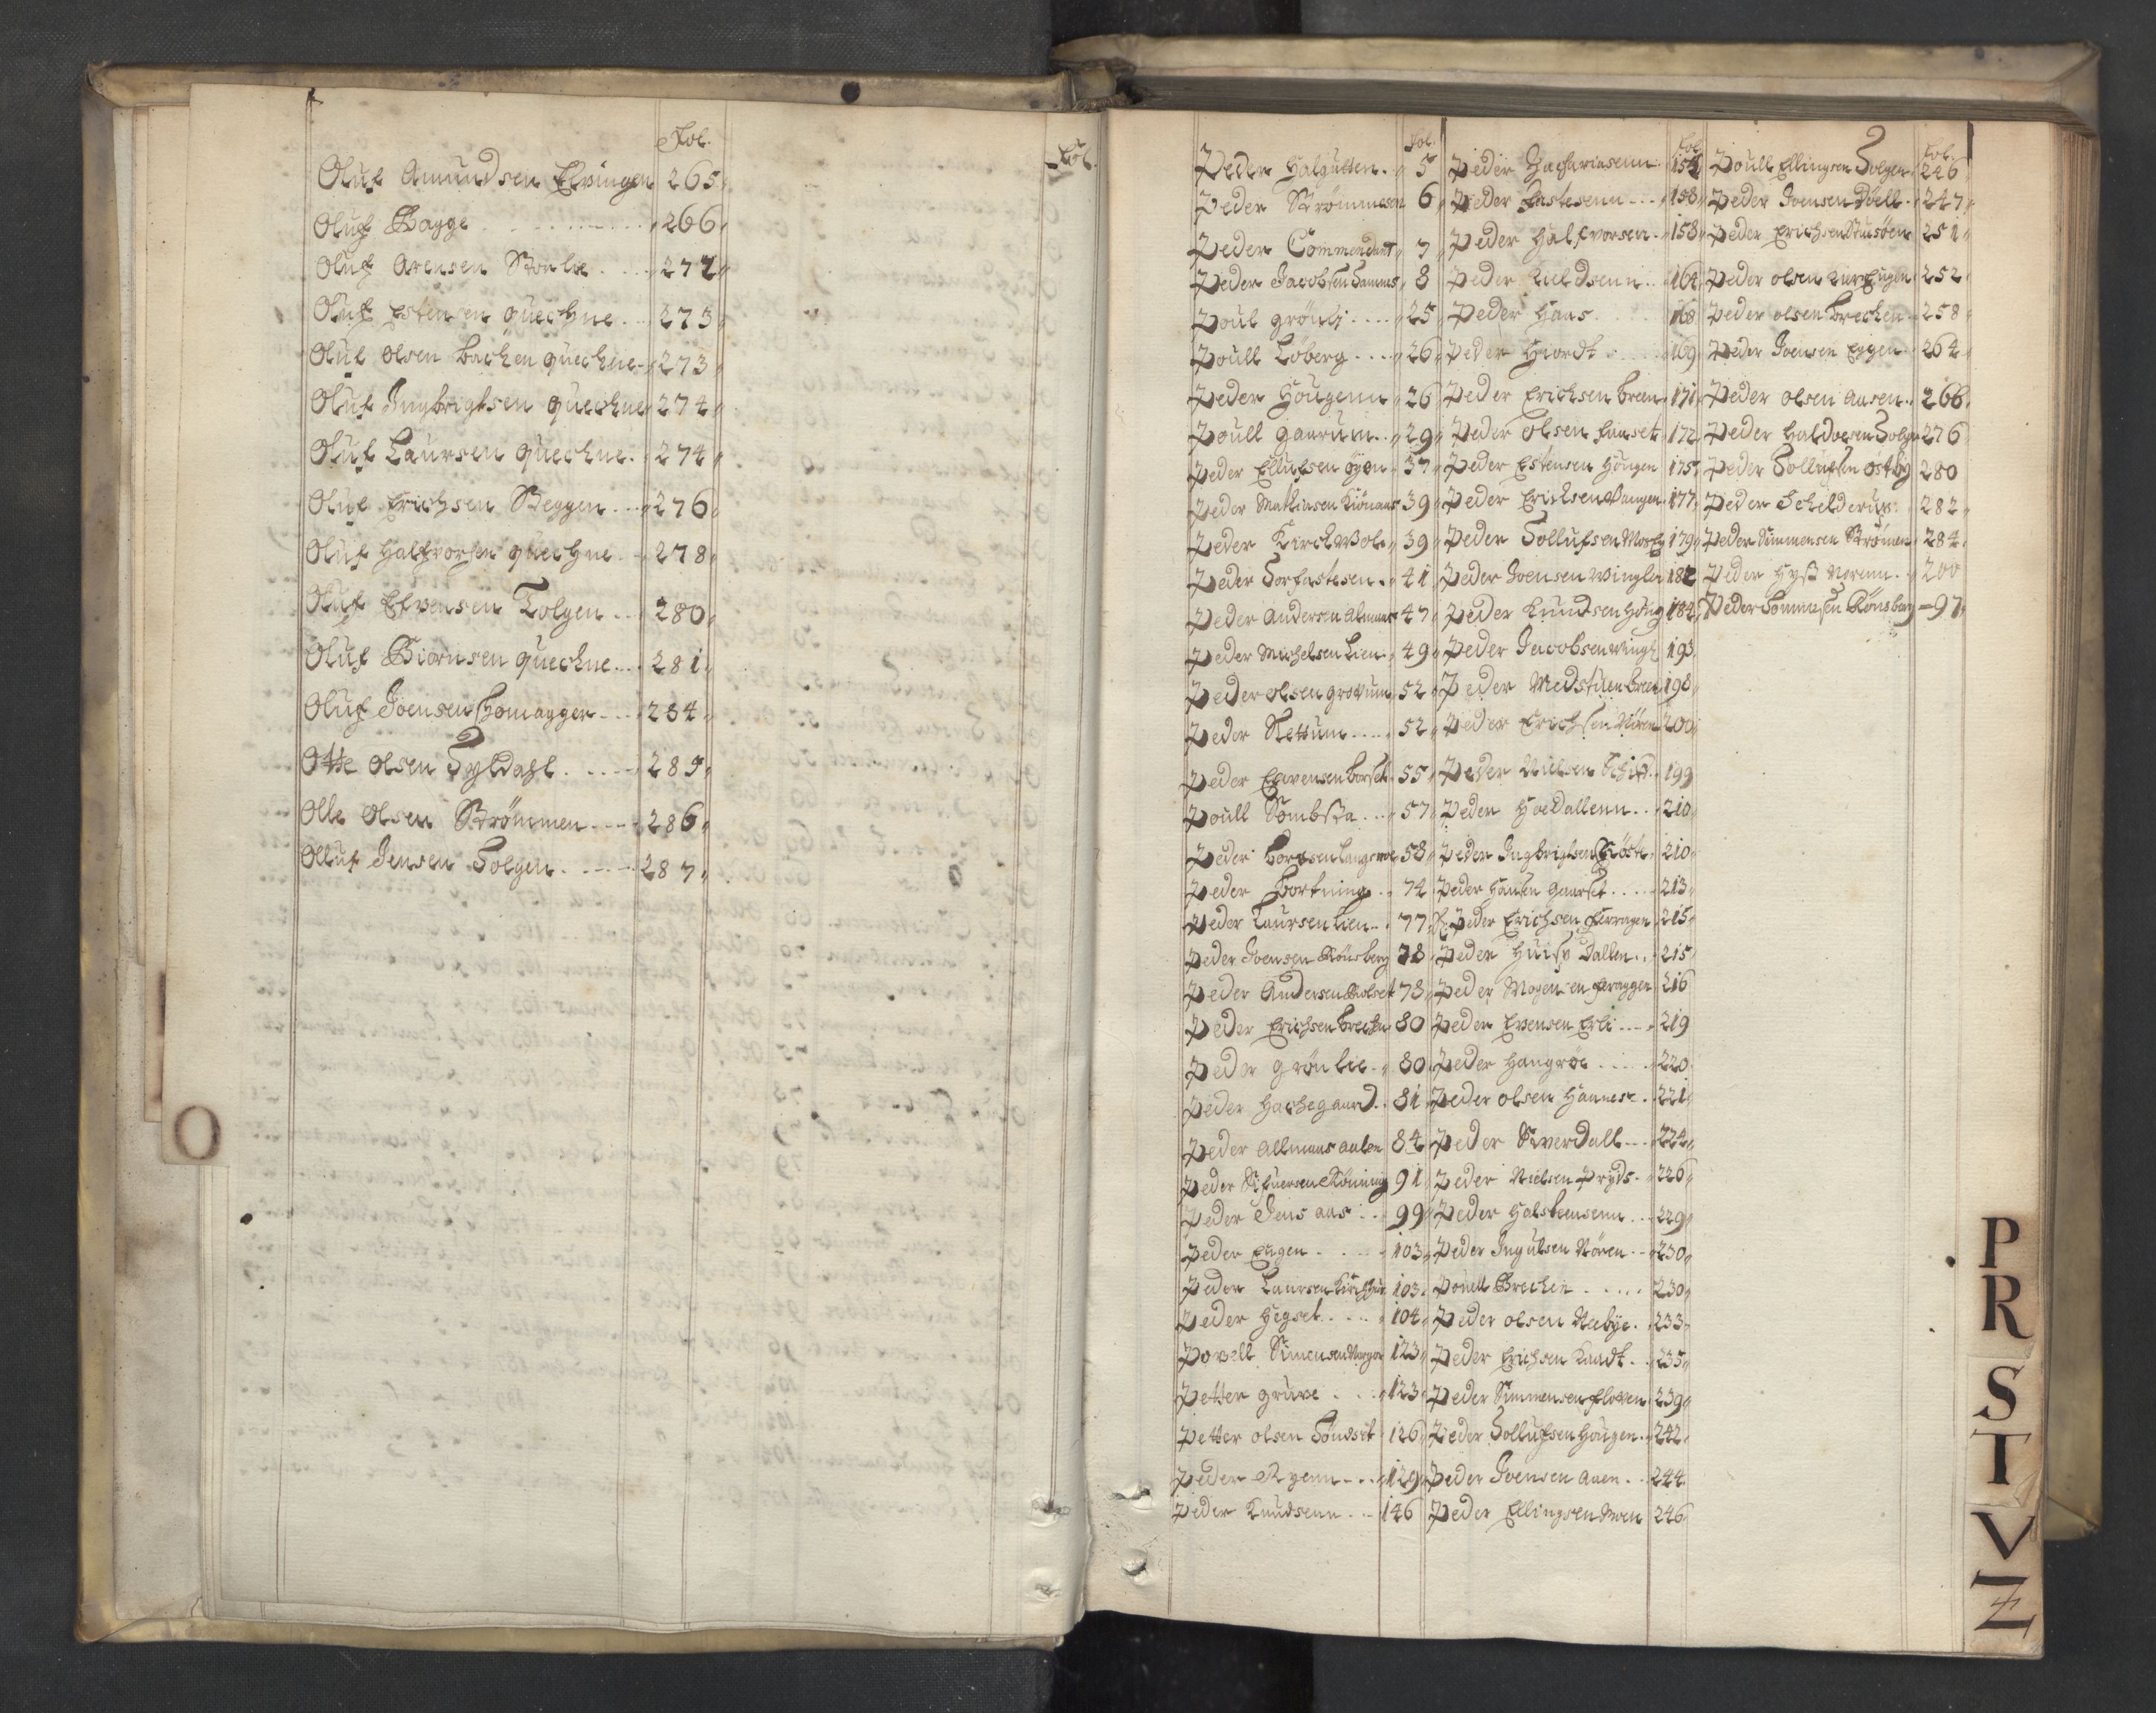 Fol.
Oluf Amundsen Elvingen 265
Oluf Bagge 266
Oluf Arensen Storlie 272
Oluf Estensen Quechne 273
Oluf Olsen Bachen Quechne 273
Oluf Ingbrigtsen Quechne 274
Oluf Laursen Quechne 274
Oluf Erichsen Steggen 276
Oluf Halfvorsen Quechne 278
Oluf Efvensen Tolgen 280
Oluf Biörnsen Quechne 281
Oluf Joensen 284
Otte Olsen Tyldahl 289
Olle Olsen Strömmen 286
Olluf Jensen Tolgen 287
O
Fol.
Fol.
Peder Halgutten 5
Peder Strömmesen 6
Peder Commendant 7
Peder Jacobsen 8
Poul Grönli 25
Poull Loberg 26
Peder Hougenn 26
Poull Gaarum 29
Peder Ellufsen Öyen 37
Peder Mathiasen 39
Peder Kirchvold 39
Peder Torfastesen 41
Peder Andersen 47
Peder Michelsen Lien 49
Peder Olsen Grovum 52
Peder Slettum 52
Peder Efvensen Borset 55
Poull 57
Peder 58
Peder Bortning 74
Peder Laursen Lien 77
Peder Joensen Rönsberg 78
Peder Andersen 78
Peder Erichsen Brechen 80
Peder Grönlie 80
Peder Hachegaard 81
Peder Allmaas Aalen 84
Peder 91
Peder Jens Aas 99
Peder Eugen 103
Peder Laursen 103
Peder Hegset 104
Povell Simensen 123
Petter Gruve 123
Petter Olsen Tönset 126
Peder Ryenn 129
Peder Knudsenn 146
Fol.
Peder Zachariasenn 154
Peder Fastesenn 158
Peder Halfvorsen 158
Peder 164
Peder Haas 168
Peder Hiordt 169
Peder Erichsen Breen 171
Peder Olsen Faaset 172
Peder Estensen Hougen 175
Peder Erichsen Vangen 177
Peder Tollufsen 179
Peder Joensen Vingln 182
Peder Knudsen Houg 184
Peder Jacobsen Vingl 193
Peder Medstuen Breen 198
Peder Erichsen Nören 200
Peder Nielsen 199
Peder Hoedallenn 210
Peder Ingbrigtsen 210
Peder Hansen Gaarset 213
Peder Erichsen Ferragen 215
Peder Dallen 215
Peder Mogensen Feragen 216
Peder Evensen Erli 219
Peder Hangröe 220
Peder Olsen Haanes 221
Peder Sverdall 224
Peder Nielsen Pryds 226
Peder Halstensenn 229
Peder Ingulsen Nören 230
Pouell Brechen 230
Peder Olsen Neebye 233
Peder Erichsen Kandt 235
Peder Simmensen Floeen 239
Peder Tollufsen Hougen 242
Peder Joensen Aaen 244
Peder Ellingsen Moen 246
Fol.
Poull Ellingsen Tolgen 246
Peder Joensen Döell 247
Peder Erichsen 251
Peder Olsen 252
Peder Olsen Brechen 258
Peder Joensen Eggen 264
Peder Olsen Aasen 266
Peder Haldoesen Tolgen 276
Peder Tollufsen Östby 280
Peder Schilderup 282
Peder Simmensen Strömen 284
Peder 200
Peder Tommesen Rönsberg 97
P
R
S
T
V
Z